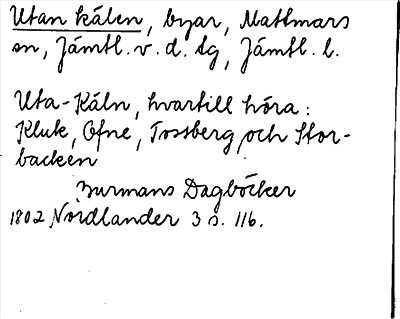 Utan kälen, byar, Mattmars
sn, Jämtl. v. d. tg, Jämtl. l.
Uta-Käln, hvartill höra:
Kluk, Ofne, Tossberg och Stor-
backen
Burmans Dagböcker
1802 Nordlander 3 s. 116.